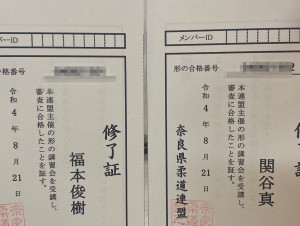 メンバーID
合格番号
修了証
福本俊樹
本連盟主催の形の講習会を受講し、
審査に合格したことを証す。
令和4年8月21日
メンバーID
形の合格番号
修了
関谷真
本連盟主催の形の講習会を受講し、
審査に合格したことを証す。
令和4年8月21日
奈良県柔道連盟